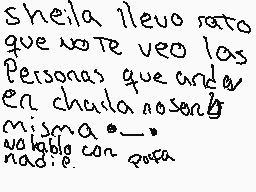 sheila llevo rato
que no te veo las
Personas que andan
en chaila no son la
misma •_•
no hablo con
nadie. porfa